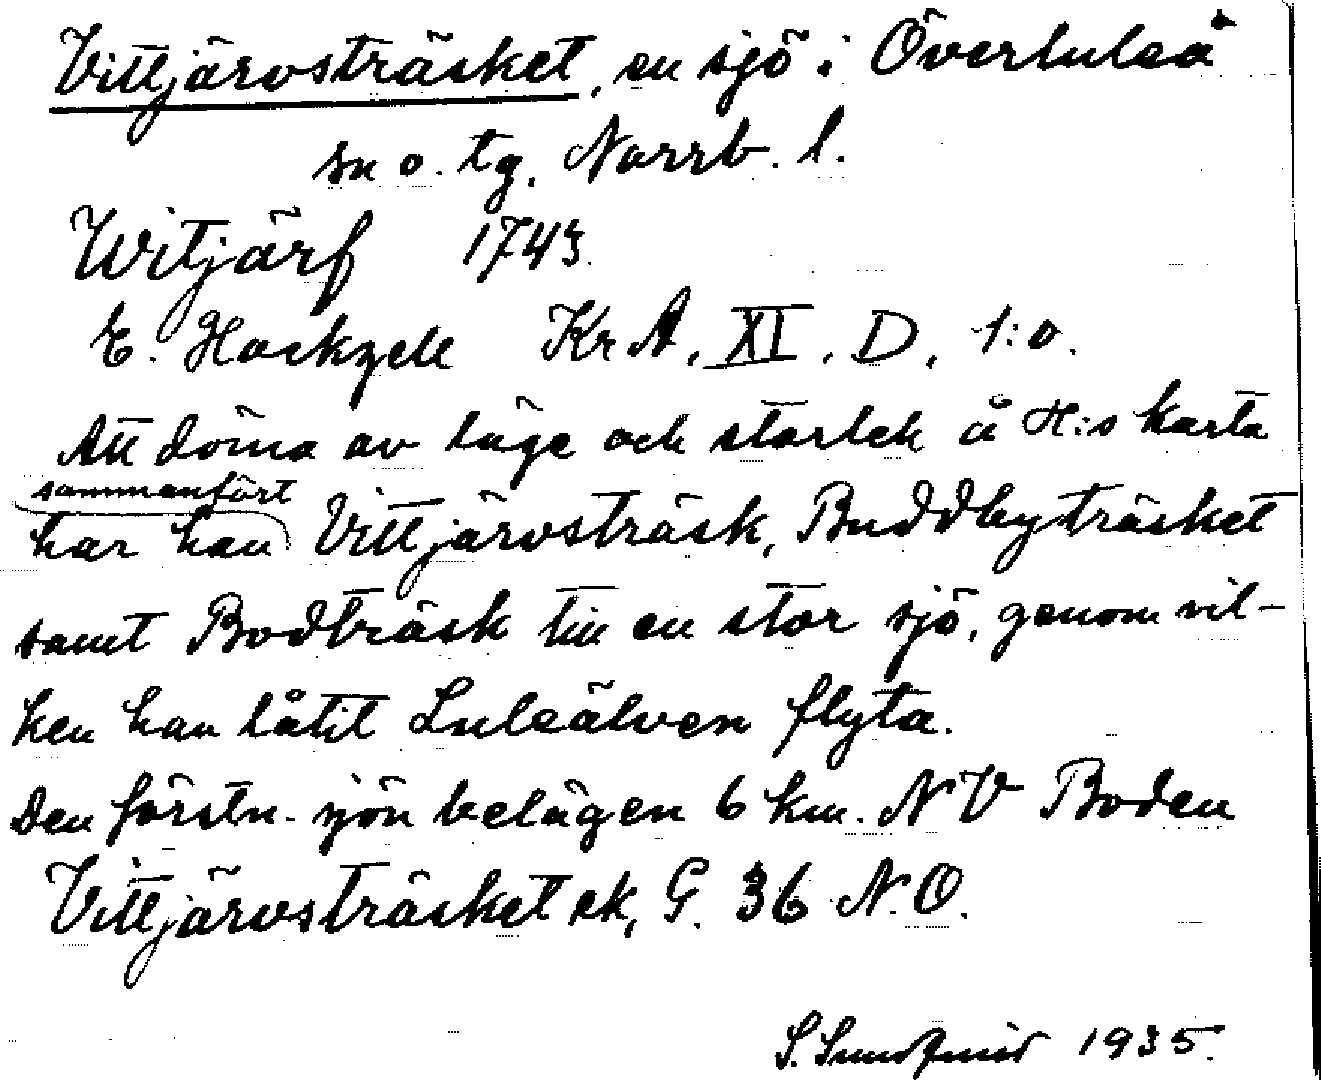 Vittjärvsträsket, en sjö i Överluleå
sn o. tg. Norrb. l.
Witjärf 1743
E. Hackzell Kr A, XI, D, 1:o.
Att döma av läge och storlek å H:s karta
sammanfört
har han Vittjärvsträsk, Buddbyträsket
samt Bodträsk till en stor sjö, genom vil-
ken han låtit Luleälven flyta.
Den förstn. sjön belägen 6 km. NV Boden
Vittjärvsträsket ek, G. 36 N.O.
S. 1935.